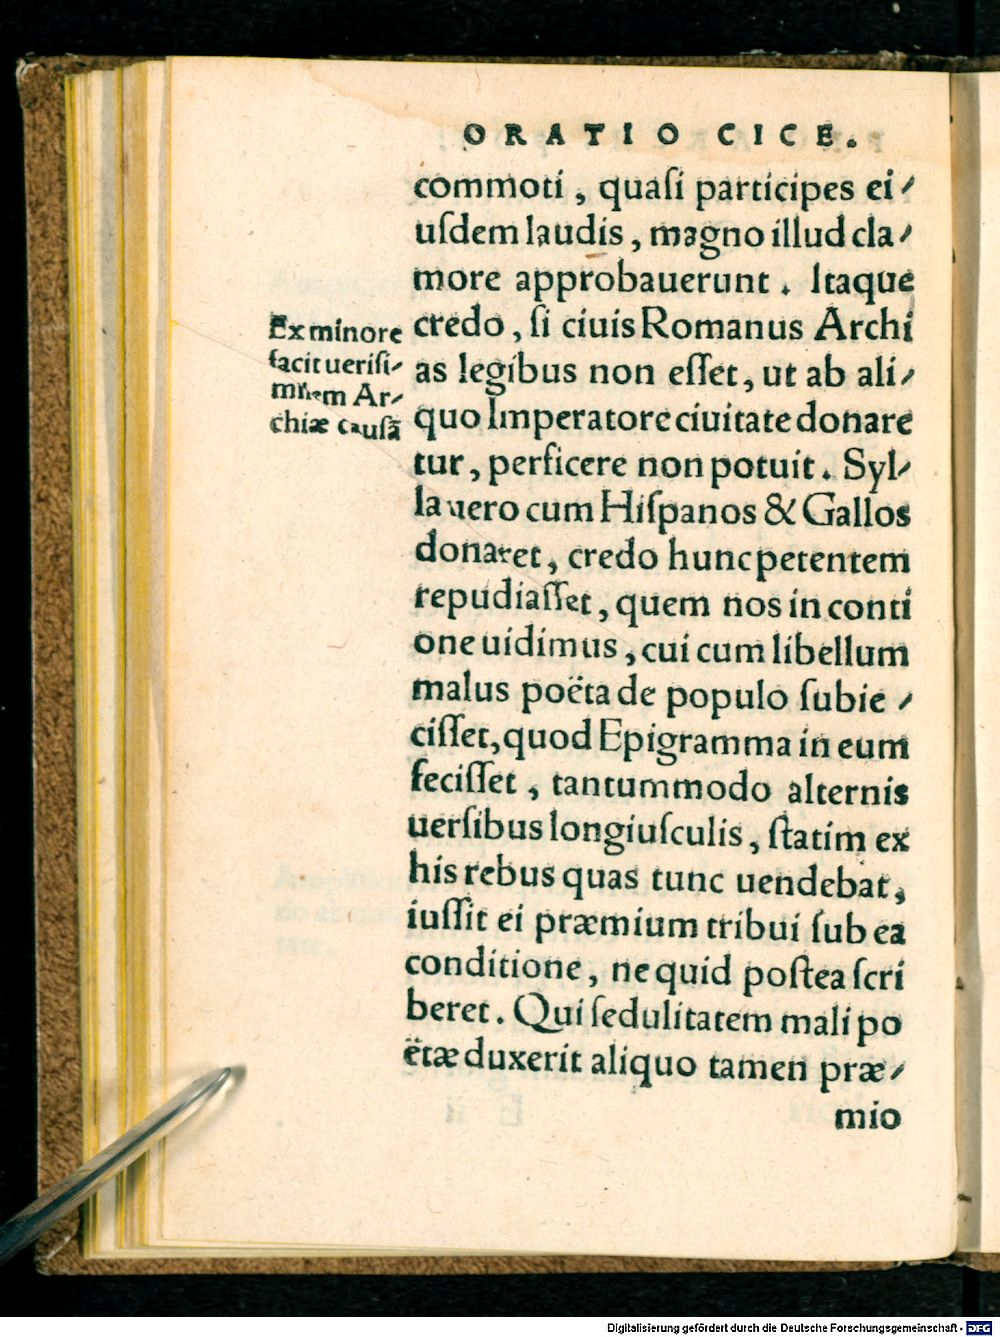 ORATIO CICE.
commoti, quaſi participes ei⸗
uſdem laudis, magno illud cla⸗
more approbauerunt. Itaque
credo, ſi ciuis Romanus Archi
as legibus non eſſet, ut ab ali⸗
quo Imperatore ciuitate donare
tur, perficere non potuit. Syl⸗
la uero cum Hiſpanos & Gallos
donaret, credo hunc petentem
repudiaſſet, quem nos in conti
one uidimus, cui cum libellum
malus poëta de populo ſubie⸗
ciſſet, quod Epigramma in eum
feciſſet, tantummodo alternis
uerſibus longiuſculis, ſtatim ex
his rebus quas tunc uendebat,
iuſſit ei præmium tribui ſub ea
conditione, ne quid poſtea ſcri
beret. Qui ſedulitatem mali po
ëtæ duxerit aliquo tamen præ⸗
mio
Ex minore
facit ueriſi⸗
milem Ar⸗
chiæ cauſã
Digitalisierung gefördert durch die Deutsche Forschungsgemeinschaft - DFG